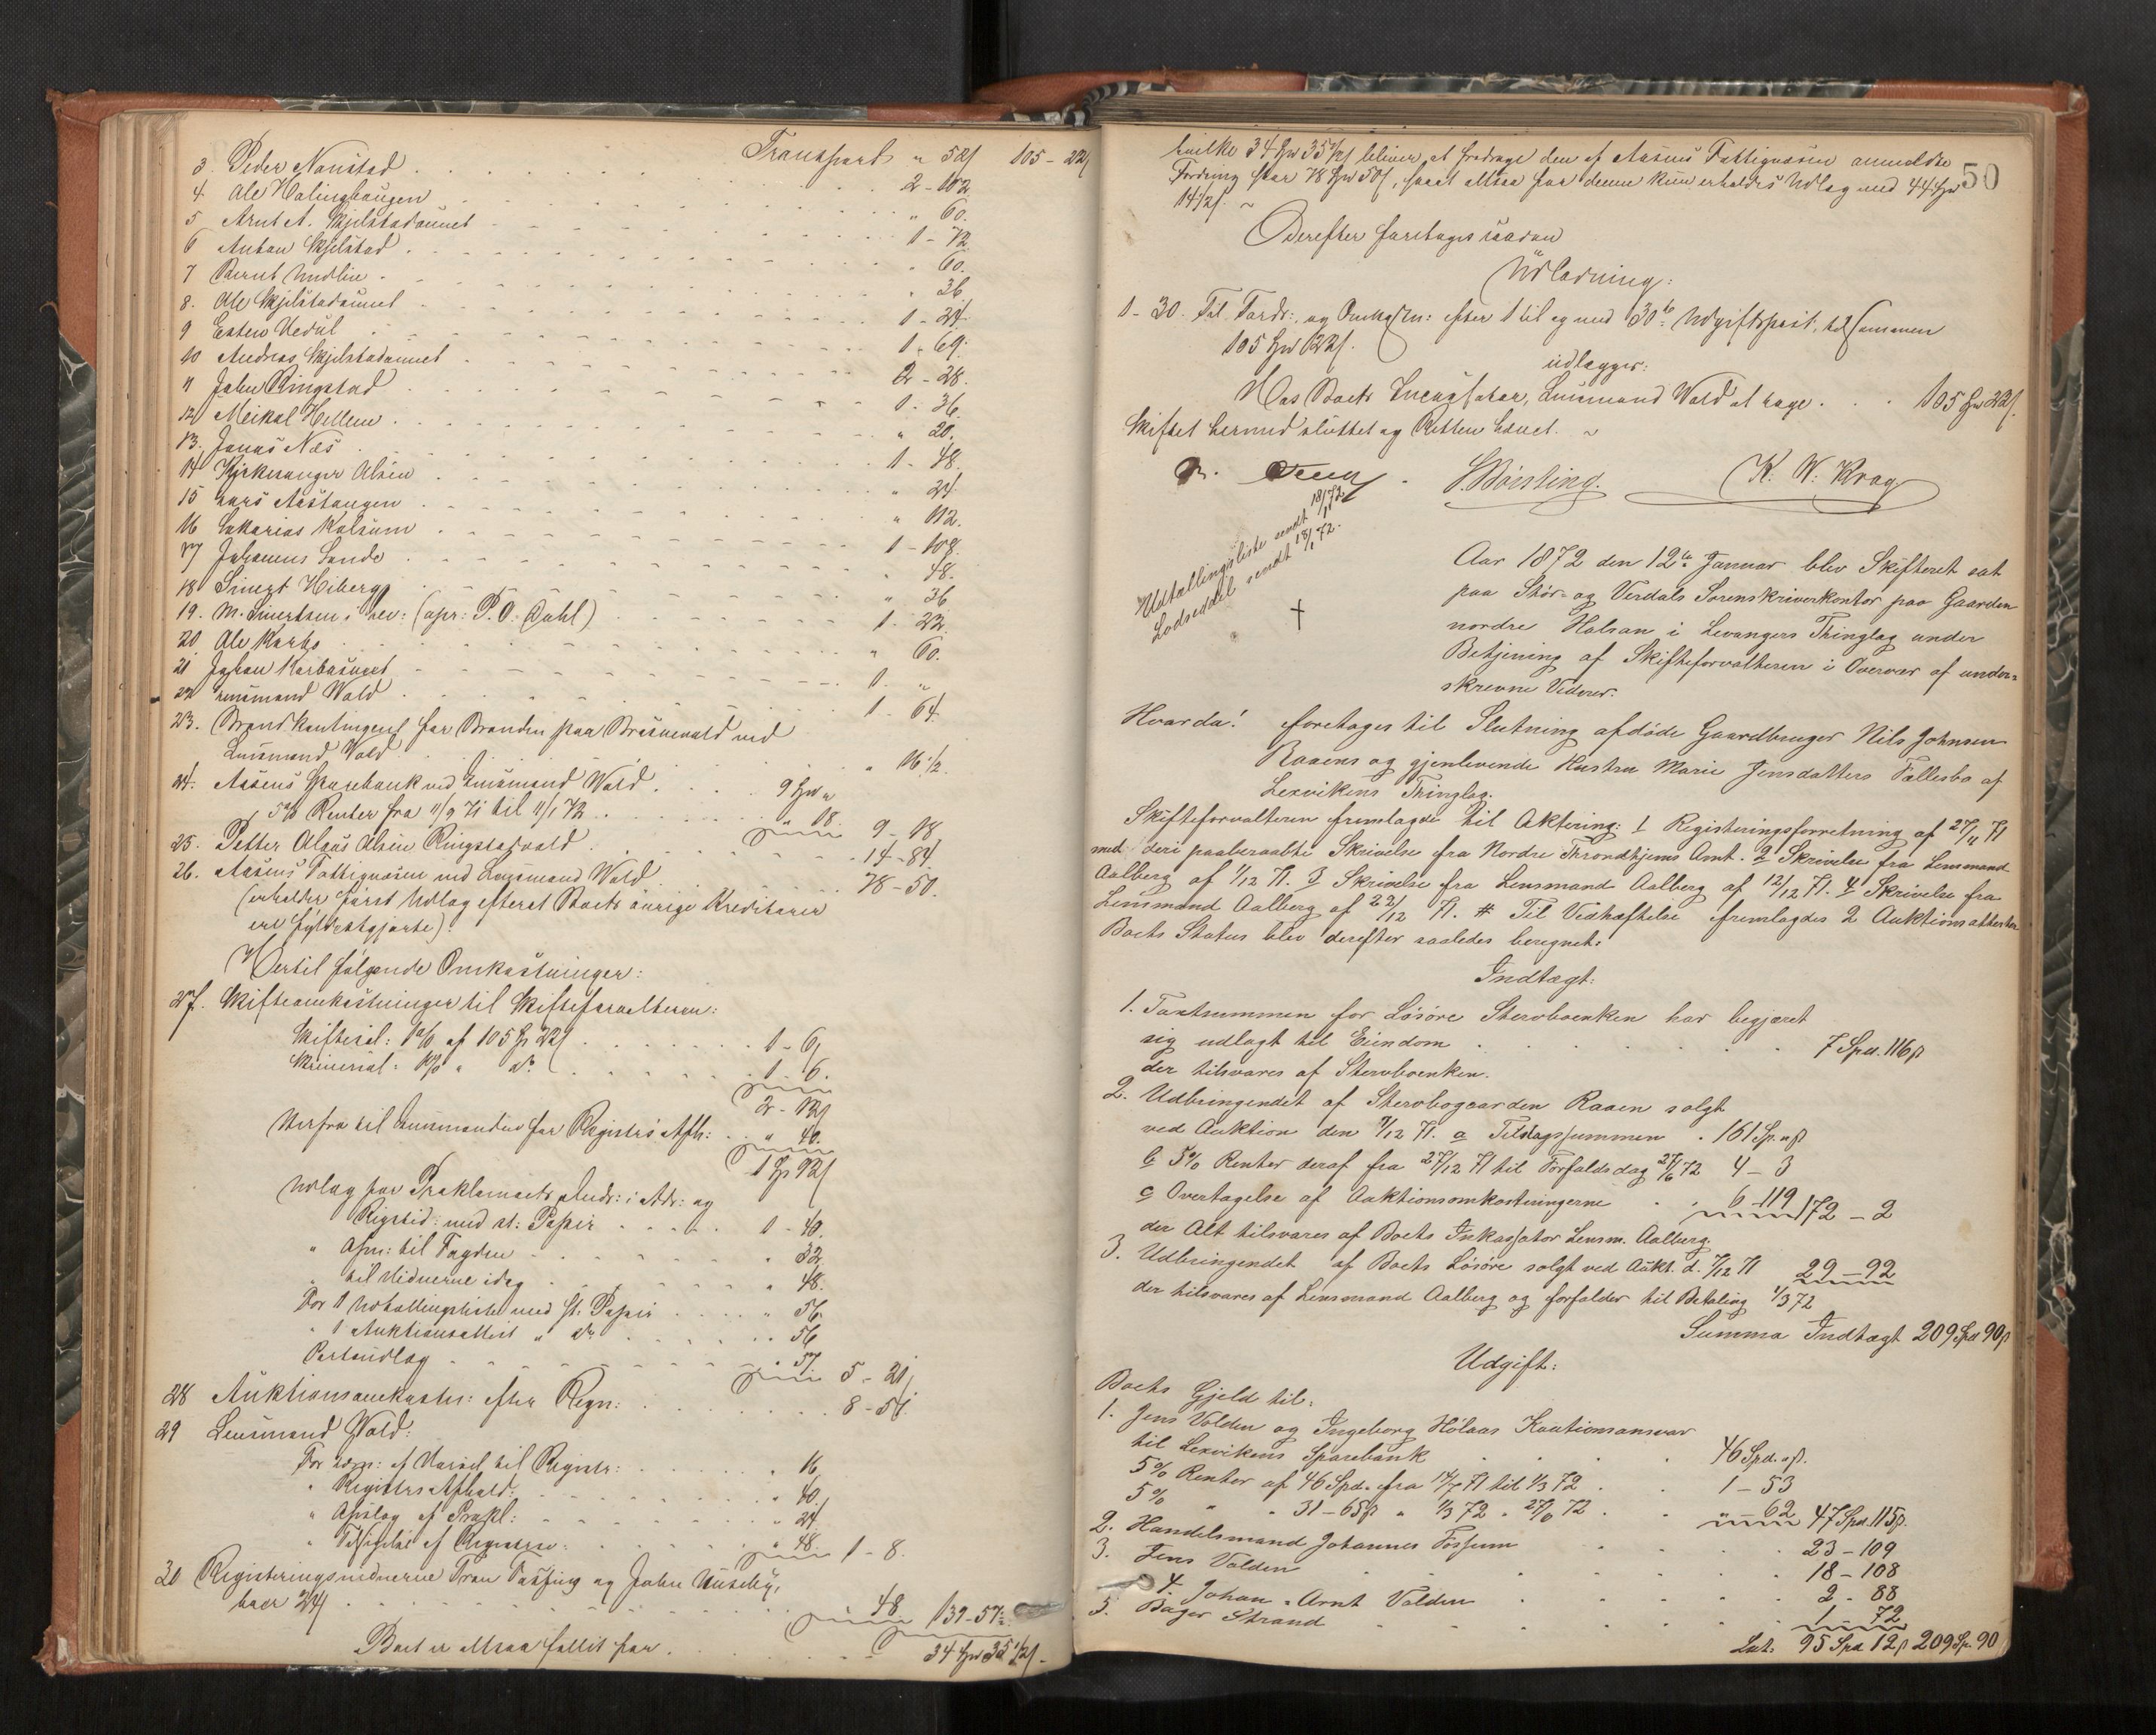 Transport " 52ß 105 - 22ß
3. Peder Nonstad . . . 2 - 102.
4. Ole Halinghaugen " 60.
5 Arnt A. Skjelstadaunet 1 - 72.
6 Anton Skjelstad . " 60.
7 Bernt Undlien . " 36
8. Ole Skjelstadaunet 1 - 24.
9 Esten Vedul 1 - 69.
10 Andreas Skjelstadaunet 2 - 28.
11 John Ringstad 1 - 36.
12 Meikal Hellem . " 20.
13. Jonas Næs 1 - 48.
14 Kirkesanger Olsen " 24
15 Lars Aastangen " 112.
16 Sakarias Kolsum 1 - 108.
17 Johannes Sande " 48.
18 Sivert Hiberg " 36
19. M. Sivertsens (opr: P. O. Dahl) 1 - 22.
20. Ole Karbo " 60.
21 Johan Karbosuget 1 - "
22 Lensmand Wold . 1 - 64
23. Brandkontingent for Branden paa ved
Lensmand Wold " 16 1/2.
24. Aasens Sparebank ved Lensmand Wold . 9 Spd "
5% Renter fra 11/9 71 til 11/1 72 . " 18. 9 - 18
25. Petter Olaus Olsen Ringstadvald 14 - 84
26. Aasens Fattigvæsen ved Lensmand Wold 78 - 50.
(erholder først Udlæg efterat Boets øvrige Kreditorer
ere fyldestgjorte).
Hertil følgende Omkostninger:
27. Skifteomkostninger til Skifteforvalteren:
Skiftesal: 1% af 105 Sp 22ß . . . 1 - 6,
Skriversal: 1% " do. 1 - 6.
2 - 12ß
Herfra til Lensmanden for Registrs Afh: . " 40.
1 Sp 92ß
Udlæg for Proklamaets Indr: i Adr: og
Rigstid: med st: Papir . . . 1 - 40.
" til Fogden " 32
" til Vidnerne idag " 48.
For 1 Udtællingsliste med st. Papir . . . " 56.
" 1 Auktionsattest " do . . . " 56
Portoudlæg " 57. 5 - 21,
28 Auktionsomkostn: efter Regn: . . . 8 - 54.
29 Lensmand Wold:
For af Varsel til Registr: " 16
" Registrs Afhold: " 40.
" Opslag af Prokl: " 24
" " 48. 1 - 8.
30 Registreringsvidnerne og John Huseby,
hver 24ß 48 139 - 57 1/2
Boet er altsaa fallit for . . . 34 Spd 35 1/2ß.
50
hvilke 34 Spd 35 1/2ß bliver at fradrage den af Aasens Fattigvæsen anmeldte
Fordring stor 78 Spd 50ß, saa at altsaa for denne kun erholdes Udlæg med 44 Spd
14 1/2ß. ~
Derefter foretages saadan
Udlodning:
1 - 30. Til Fordr: og Omkostn: efter 1 til og med 30te Udgiftspost, tilsammen
105 Spd 22ß.
udlægges:
Hos Boets Incassator, Lensmand Wold at tage . . . 105 Spd 22ß.
Skiftet hermed sluttet og Retten hævet. ~
S. Børsting. K. W. Krog
Udtællingsliste sendt 18/1 72.
Lodseddel sendt 18/1 72.
Aar 1872 den 12te Januar blev Skifteret sat
paa Stør- og Verdals Sorenskriverkontor paa Gaarden
nordre Halsan i Levangers Thinglag under
Betjening af Skifteforvalteren i Overvær af under-
skrevne Vidner.
Hvorda: foretoges til Slutning afdøde Gaardbruger Nils Johnsen
Raaens og gjenlevende Hustru Marie Jensdatters Fællesbo af
Lexvikens Thinglag.
Skifteforvalteren fremlagde til Aktering: 1 Registreringsforretning af 27/11 71
med deri paaberaabte Skrivelse fra Nordre Throndhjems Amt. 2 Skrivelse fra Lensmand
Aalberg af 1/12 71. 3 Skrivelse fra Lensmand Aalberg af 12/12 71. 4 Skrivelse fra
Lensmand Aalberg af 22/12 71. # Til Vedhæftelse fremlagdes 2 Auktionsattester
Boets Status blev derefter saaledes beregnet:
Indtægt:
1. Taxtsummen for Løsøre Stervboenken har begjæret
sig udlagt til Eiendom . . . 7 Spd. 116ß
der tilsvares af Stervboenken.
2. Udbringendet af Stervbogaarden Raaen solgt
ved Auktion den 7/12 71. a Tilslagssummen . 161 Sp. "ß
b 5% Renter deraf fra 27/12 71 til Forfaldsdag 27/6 72 4 - 3
c Overtagelse af Auktionsomkostningerne . . 6 - 119 172 - 2
der Alt tilsvares af Boets Inkassator Lensm. Aalberg.
3. Udbringendet af Boets Løsøre solgt ved Aukt. d. 7/12 71 29 - 92
der tilsvares af Lensmand Aalberg og forfalder til Betaling 1/3 72
Summa Indtægt 209 Spd 90ß
Udgift:
Boets Gjeld til:
1. Jens Volden og Ingeborg Hølaas Kautionsansvar
til Lexvikens Sparebank . . . 46 Spd. "ß.
5% Renter af 46 Spd. fra 14/7 71 til 1/3 72 . . 1 - 53
5% " " 31 - 65ß " 1/3 72 " 27/6 72 . . " - 62 47 Spd. 115ß.
2. Handelsmand Johannes Fossum 23 - 109
3. Jens Volden 18 - 108
4. Johan Arnt Volden 2 - 88
5. Bager Strand 1 - 72
Lat: 95 Spd 12ß 209 Sp. 90